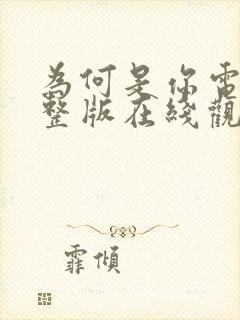 為何是你電
整版在綫觀
霏傾